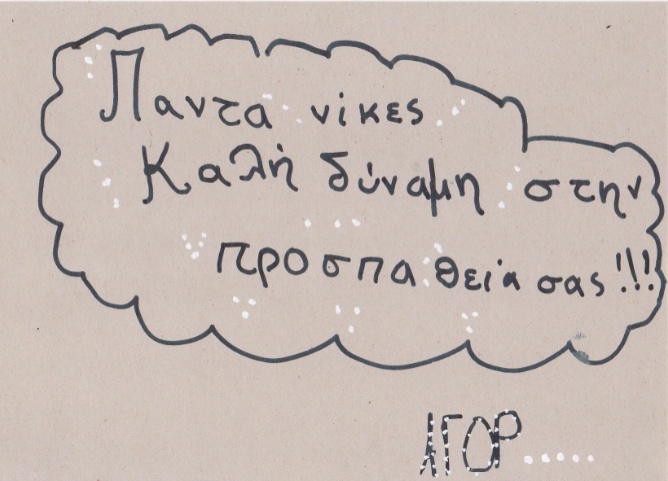 Παντα νίκες
Καλή δύναμη στην
προσπαθεία σας!!!
ΑΓΟΡ.....